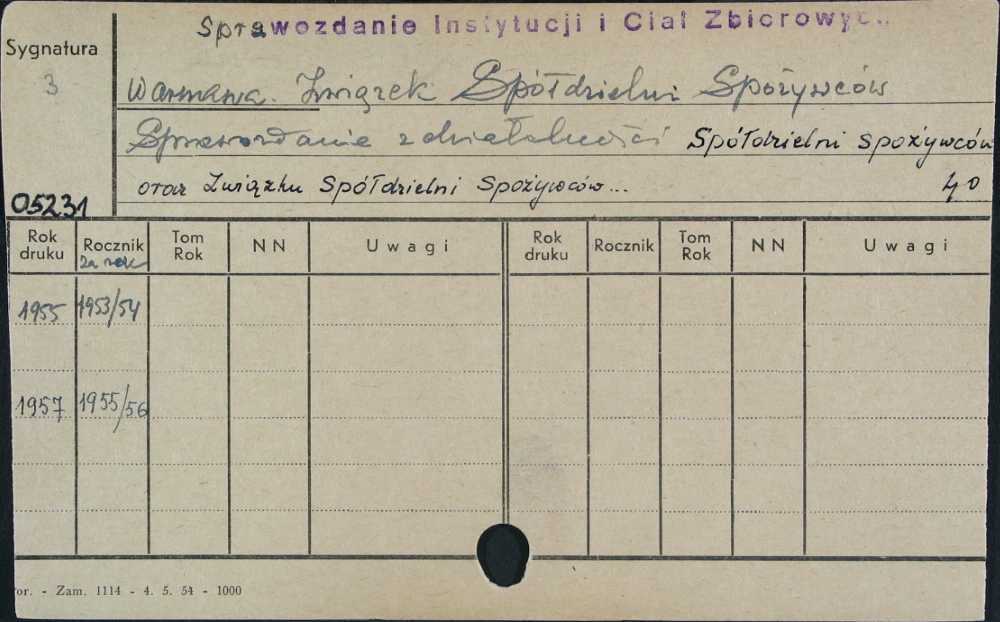 Sprawozdanie Instytucji i Ciał Zbiorowych
Sygnatura
3
Warszawa. Związek Spółdzielni Spożywców
Sprawozdanie z działalności Spółdzielni Spożywców
oraz Związku Spółdzielni Spożywców... 40
05231
Rok druku Rocznik za rok Tom Rok NN Uwagi Rok druku Rocznik Tom Rok NN Uwagi
1955 1953/54
1957 1955/56
or. - Zam. 1114 - 4. 5. 54 - 1000